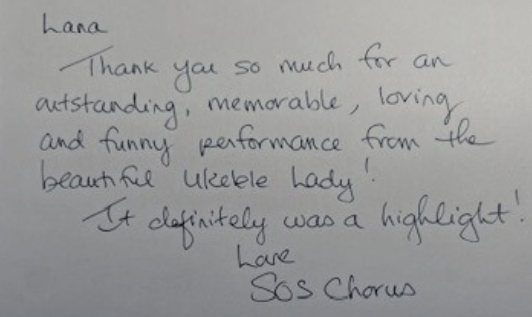 Lana
Thank you so much for an
outstanding, memorable, loving
and funny performance from the
beautiful Ukelele Lady!
It definitely was a highlight!
Love
SOS Chorus